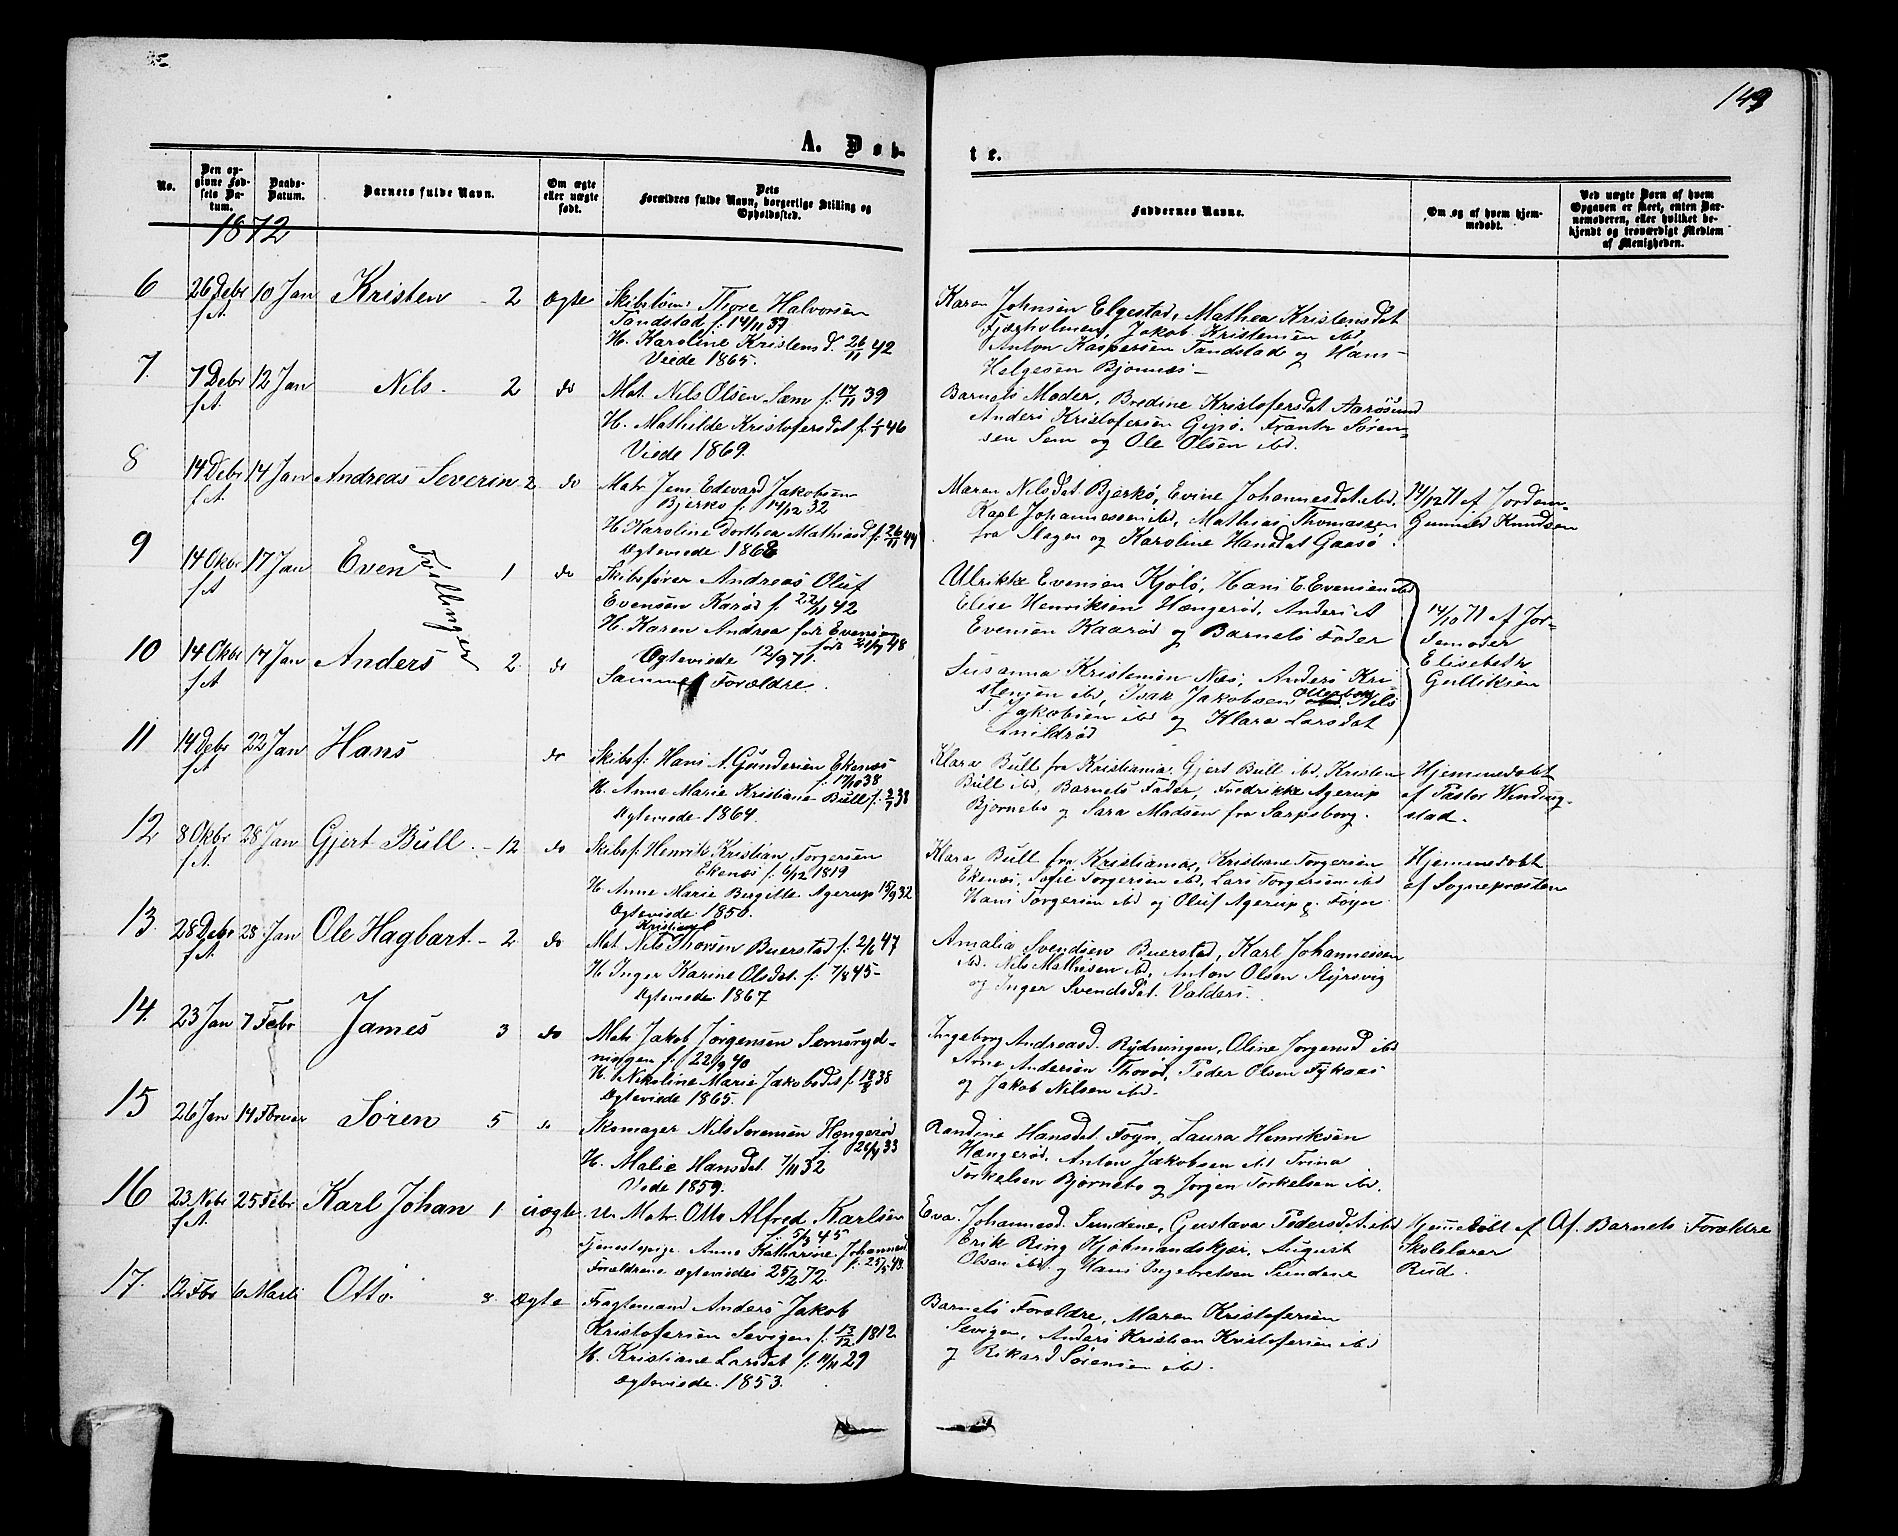 149
A. Døb-
te.
No.
Den op-
givne Fød-
sels Da-
tum.
Daabs-
Datum.
Barnets fulde Navn.
Om ægte
eller uægte
født.
Dets
Forældres fulde Navn, borgerlige Stilling og
Opholdssted.
Faddernes Navne.
Om og af hvem hjem-
medøbt.
Ved uægte Børn af hvem
Opgaven er skeet, enten Bar-
nemoderen, eller hvilket be-
kjendt og troværdigt Medlem
af Menigheden.
1872
6 26 Debr 10 Jan Kristen - 2 ægte
f A.
Skibstøm: Thore Halvorsen
Tandstad f: 14/11 37
H. Karoline Kristensd. 26/11 42
Viede 1865.
Karen Johnsen Elgestad, Mathea Kristensdat
Fjærholmen, Jakob Kristensen ibd
Anton Kaspersen Tandstad og Hans
Helgesen Bjønnes
7. 7 Debr 12 Jan Nils. 2 do
f A.
Mat. Nils Olsen Sem f. 17/11 39
H. Mathilde Kristofersdat f. 1/1 46
Viede 1869.
Barnets Moder, Bredine Kristofersdat Aarøsund
Anders Kristofersen Gipø. Frantz Søren-
sen Sem og Ole Olsen ibd.
8 14 Debr 14 Jan Andreas Severin 2 do
f A.
Matr Jens Edevard Jakobsen
Bjerkø f. 14/12 32
H. Karoline Dorthea Mathiasd f. 26/11 44
Ægteviede 1868
Maren Nilsdat. Bjerkø, Evine Johannesdat ibd.
Karl Johannessen ibd, Mathias Thomassen
fra Slagen og Karoline Hansdat Gaasø.
14/12 71 af Jordem-
Gunnild Knudsen
9 14 Okbr 17 Jan Even 1 do
f A.
Tvillinger
Skibsfører Andreas Oluf
Evensen Karød f. 22/11 42
H. Karen Andrea før Evensen
født 21/7 48
Ægteviede 12/9 71.
Ulrikke Evensen Kjølø, Hans E. Evensen ibd
Elise Henriksen Hængerød, Anders A
Evensen Kaarød og Barnets Fader
14/10 71 af Jor-
demoder
Elisebeth
Gulliksen
10 14 Okbr 17 Jan Anders 2 do
f A.
Samme Forældre.
Susanna Kristensen Næs, Anders Kri
stensen ibd, Isak Jakobsen Ollesborg Nils
T. Jakobsen ibd og Klara Larsdat
11 14 Debr 22 Jan Hans do
f A
Skibsf: Hans A. Gundersen Ekenæs
f. 17/10 38
H. Anne Marie Kristiane Bull f. 2/7 38
Ægteviede 1864.
Klara Bull fra Kristiania. Gjert Bull ibd, Kristen
Bull ibd, Barnets Fader, Fredrikke Agerup
Bjørnebo og Sara Madsen fra Sarpsborg.
Hjemmedøbt
af Pastor Winding-
stad.
12 8 Okbr 28 Jan Gjert Bull. - 12 do
f A.
Skibsf: Henrik Kristian Torgersen
Ekenæs f. 6/12 1819
H. Anne Marie Birgitte Agerup 15/9 32
Ægteviede 1850.
Klara Bull fra Kristiania, Kristiane Torgersen
Ekenæs, Sofie Torgersen ibd, Lars Torgersen ibd
Hans Torgersen ibd og Oluf Agerup p. Føyen.
Hjemmedøbt
af Sognepræsten
13. 28 Debr 28. Jan Ole Hagbart. - 2 do
f A.
Kristian
Mat. Nils Thorsen Buerstad f: 2/6 47
H Inger Karine Olsdat. f: 7/8 45-
Ægteviede 1867
Amalia Svendsen Buerstad, Karl Johannessen
ibd. Nils Mathisen ibd, Anton Olsen Styrsvig
og Inger Svendsdat. Valders.
14. 23 Jan 7 Febr James 3 do
Matr Jakob Jørgensen Semsryd-
ningen f. 22/9 40
H. Nikoline Marie Jakobsdat f. 18/8 38
Ægteviede 1865.
Ingeborg Andreasd. Rydningen, Oline Jørgensd ibd
Arne Andersen Thorød, Peder Olsen Fykaas
og Jakob Nilsen ibd.
15 26 Jan 14 Februar Søren 5 do
Skomager Nils Sørensen Hængerød
f. 26/4 33
H. Malie Hansdat. 7/11 32
Viede 1859.
Randine Hansdat. Foyn, Laura Henriksen
Hængerød. Anton Jakobsen ibd Trina
Torkelsen Bjørnebo og Jørgen Torkelsen ibd.
16 23 Nobr 25 Febr Karl Johan 1 uægte
f A.
U. Matr. Otto Alfred Karlsen
5/3 45
Tjenestepige Anne Katharine Johannesd
f. 25/5 43.
Forældrene ægteviedes 25/2 72.
Eva Johannesd. Sundene, Gustava Pedersdat. ibd
Erik Ring Kjøbmandskjær, August
Olsen ibd og Hans Ingebretsen Sundene
Hjemmedøbt af
Skolelærer
Rud.
Af. Barnets Forældre
17. 12 Fbr 6 Marts Otto. 8 ægte
Fragtemand Anders Jakob
Kristofersen Sevigen f: 13/12 1812
H. Kristiane Larsdat f. 11/11 29
Ægteviede 1853.
Barnets Forældre, Maren Kristofersen
Sevigen, Anders Kristian Kristofersen ibd
og Rikard Sørensen ibd.